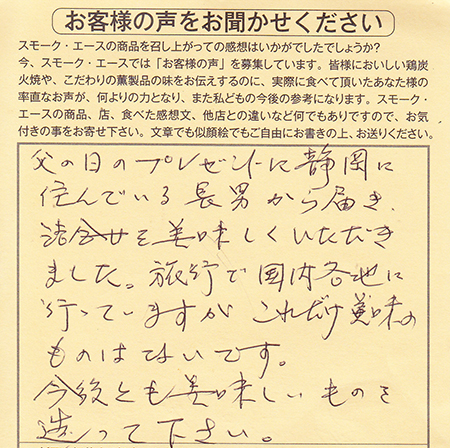 お客様の声をお聞かせください
スモーク・エースの商品を召し上がっての感想はいかがでしたでしょうか?
今、スモーク・エースでは「お客様の声」を募集しています。皆様においしい鶏炭
火焼や、こだわりの薫製品の味をお伝えするのに、実際に食べて頂いたあなた様の
率直なお声が、何よりの力となり、また私どもの今後の参考になります。スモーク・
エースの商品、店、食べた感想文、他店との違いなど何でもありですので、お気
付きの事をお寄せ下さい。文章でも似顔絵でもご自由にお書きの上、お送りください。
父の日のプレゼントに静岡に
住んでいる長男から届き、
詰合せを美味しくいただき
ました。旅行で国内各地に
行っていますが これだけ美味の
ものはないです。
今後とも美味しいものを
造って下さい。